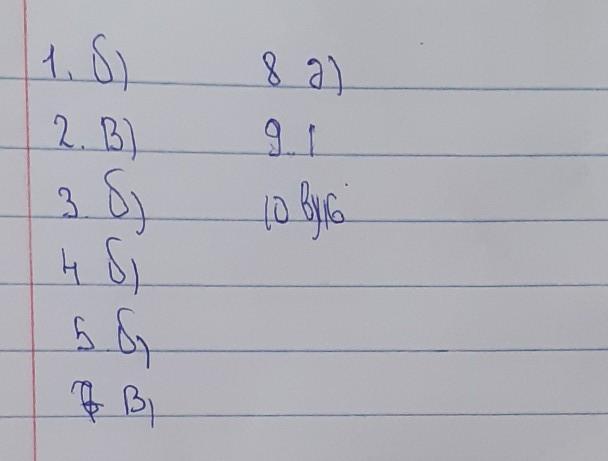 1. б)
2. В)
3. б)
4 б)
5 б)
7 В)
8 а)
9. 1
10